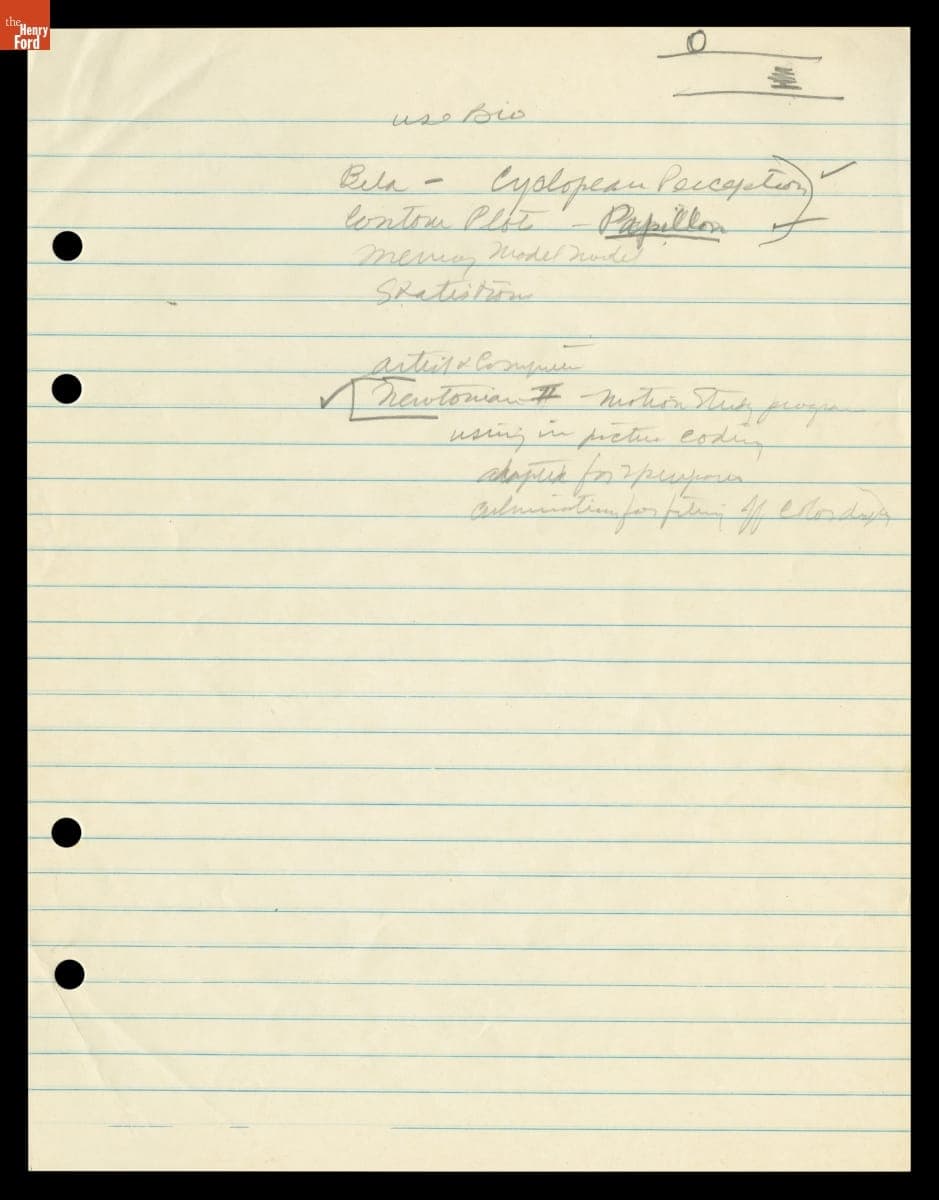 the Henry Ford
use Bio
Bela - Cyclopean Perception
Contour Plot - Papillon
Memory Model
Statistron
artist & Computer
Newtonian II - Motion Study program
using in picture coding
adapted for purposes
culminating for filming off color